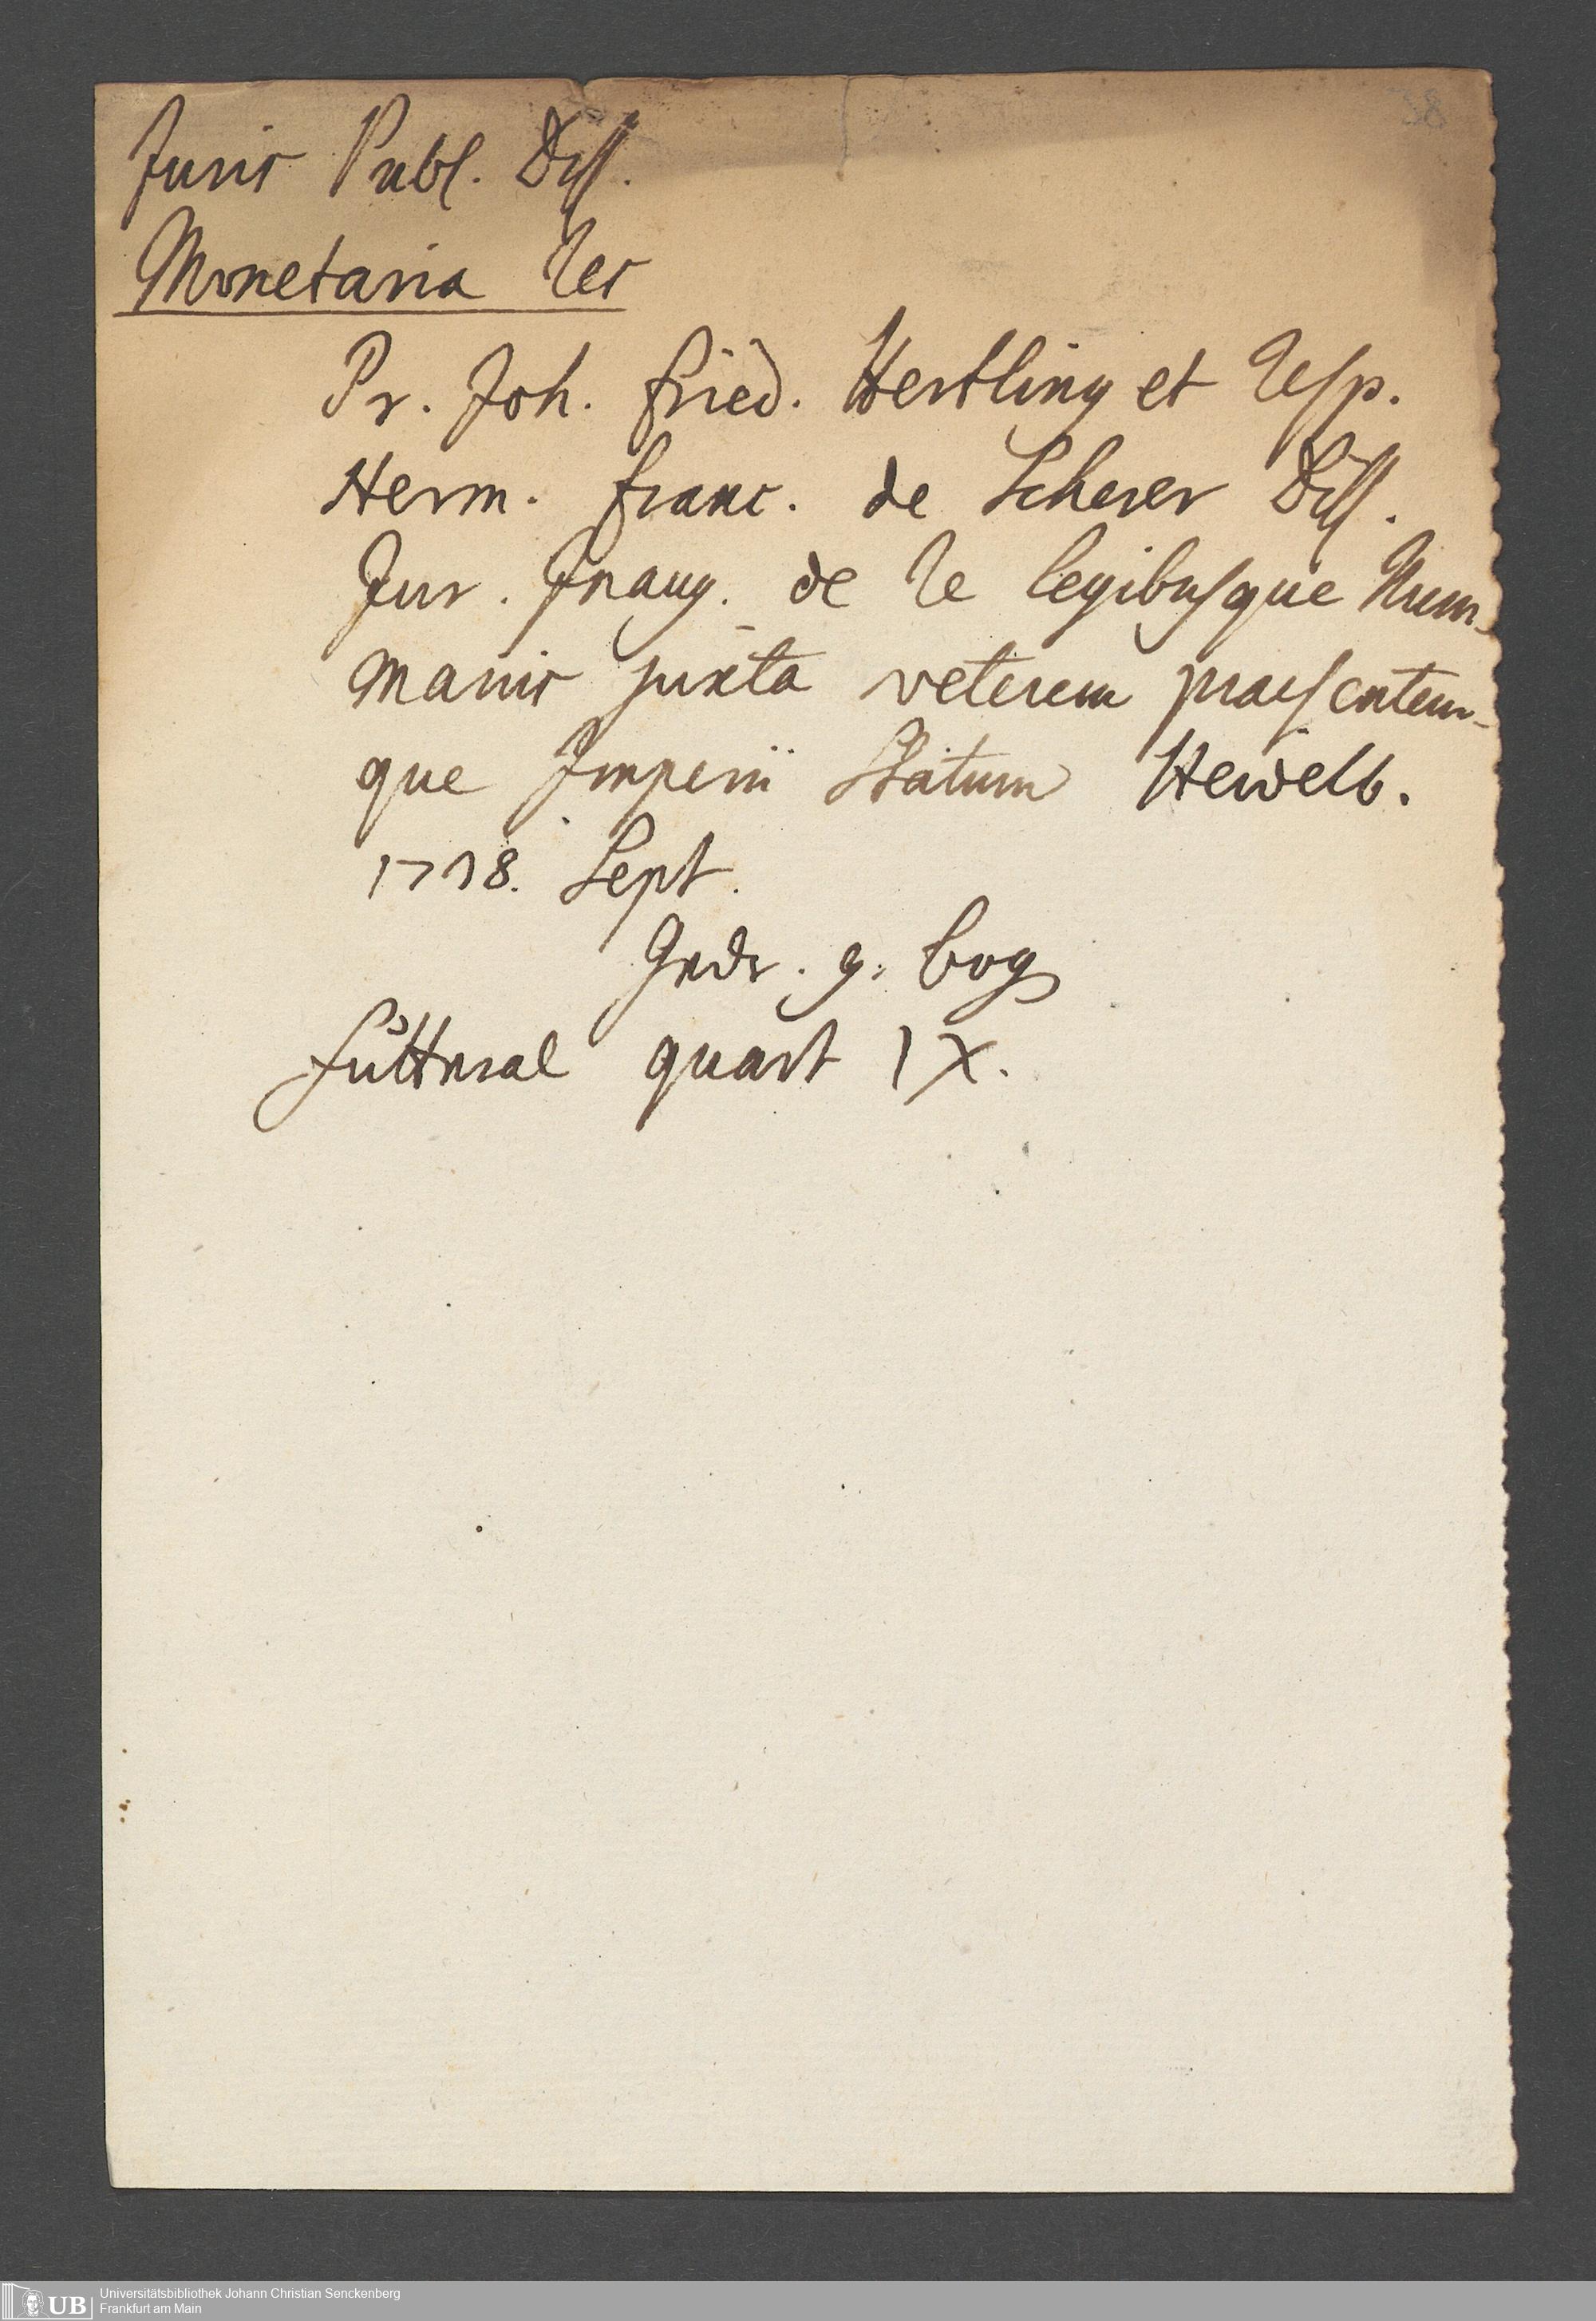 38
Juris Publ. Diss.
Monetaria Res
Pr. Joh. Fried. Hertling et Resp.
Herm. Franc. de Scherer Diss.
Jur. Inaug. de Re legibusque Num-
mariis juxta veterem praesentem-
que Imperii Statum Heidelb.
1738. Sept.
g. Bog
quart IX.
UB Universitätsbibliothek Johann Christian Senckenberg
Frankfurt am Main